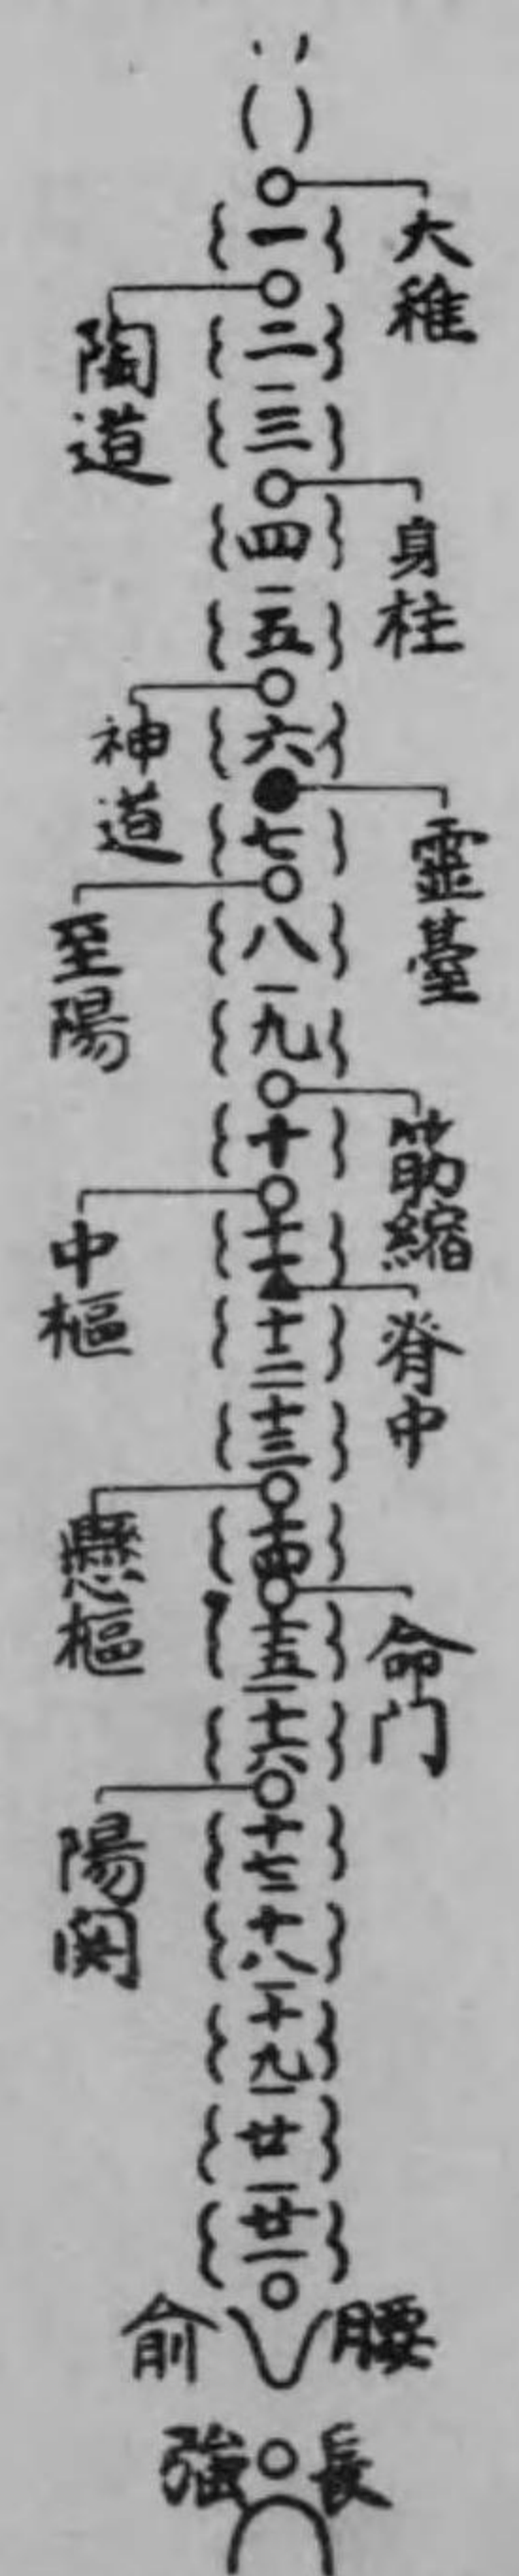 大稚
一
陶道
二
三
身柱
四
五
神道
六
靈臺
七
至陽
八
九
筋縮
十
中樞
十一
脊中
十二
十三
懸樞
十四
命门
十五
十六
陽関
十七
十八
十九
廿
廿一
腰俞
長強